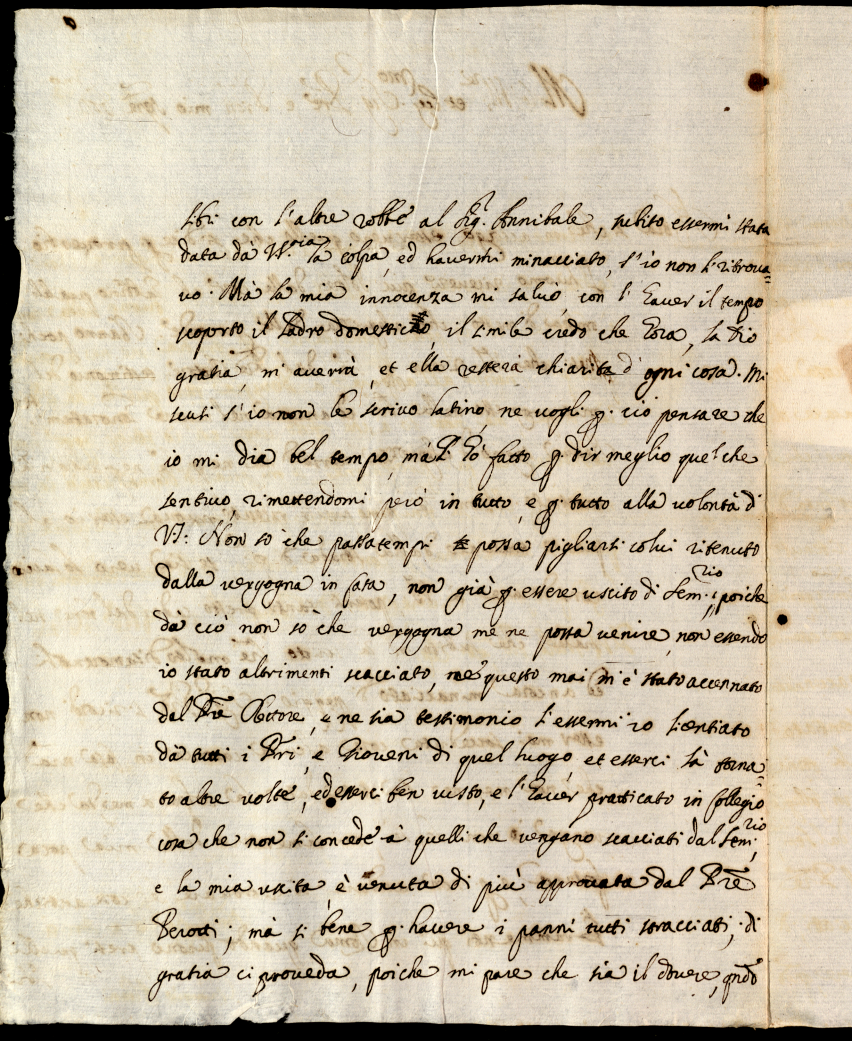 libri con l'altre robbe al Sig.r Annibale, subito essermi stata
data dà V.S.ria la colpa, ed havermi minacciato, s'io non li ritrova=
vo. Mà la mia innocenza mi salvò, con l'haver il tempo
scoperto il ladro domestico, il simile credo che hora, la Dio
gratia, m'averrà, et ella resterà chiarita d'ogni cosa. Mi
scusi s'io non le scrivo latino, ne vogli p. ciò pensare che
io mi dia bel tempo, mà l'hò fatto p. dir meglio quel che
sentivo, rimettendomi però in tutto, e p. tutto alla volontà di
V.S: Non sò che passatempi possa pigliarsi colui ritenuto
dalla vergogna in casa, non già p. essere uscito di Sem.rio, poiche
dà ciò non sò che vergogna me ne possa venire, non essendo
io stato altrimenti scacciato, ne questo mai m'è stato accennato
dal Pre Rettore, e ne sia testimonio l'essermi io licentiato
dà tutti i Pri, e Gioveni di quel luogo et esserci là torna=
to altre volte, ed esserci ben visto, e l'haver pratticato in Collegio
cosa che non si concede à quelli che vengano scacciati dal Sem.rio,
e la mia uscita è venuta di più approvata dal Pre
Perotti; mà si bene p. havere i panni tutti stracciati, di
gratia ci proveda, poiche mi pare che sia il dovere, qndo